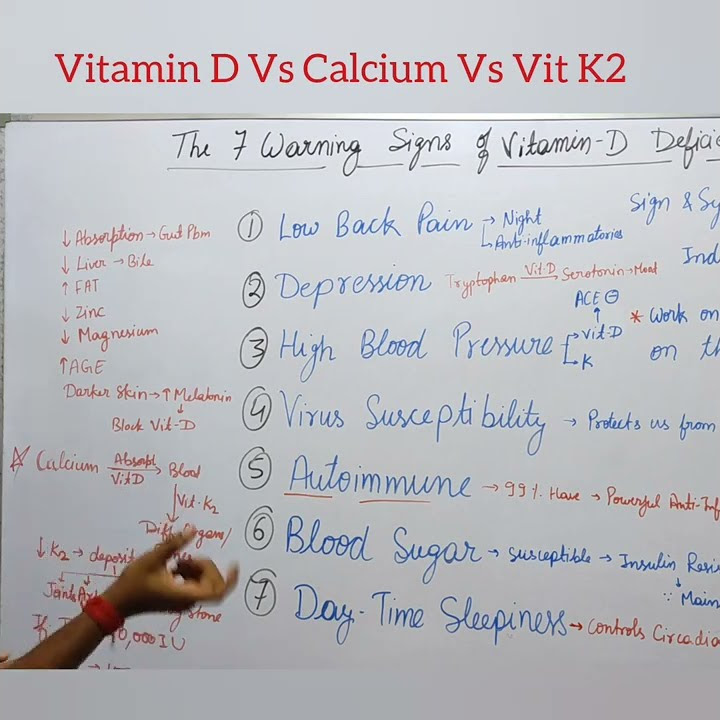 Vitamin D Vs Calcium Vs Vit K2
The 7 Warning Signs of Vitamin-D Deficie
Sign & Sy
Ind
* Work on
on th
① Low Back Pain → Night
→ Anti-inflammatories
② Depression Tryptophan Vit.D → Serotonin → Mood
ACE ⊖
↑
③ High Blood Pressure → Vit-D
→ K
④ Virus Susceptibility → Protects us from
⑤ Autoimmune → 99% Have → Powerful Anti-Inf
⑥ Blood Sugar → Susceptible → Insulin Resis
↓
∵ Main
⑦ Day-Time Sleepiness → Controls Circadia
↓ Absorption → Gut Pbm
↓ Liver → Bile
↑ FAT
↓ Zinc
↓ Magnesium
↑ AGE
Darker Skin → ↑ Melatonin
↓
Block Vit-D
Calcium Absorpt Vit D → Blood
↓ Vit-K2
Diff Organs/
↓ K2 → deposit
Joints
Stone
10,000 IU